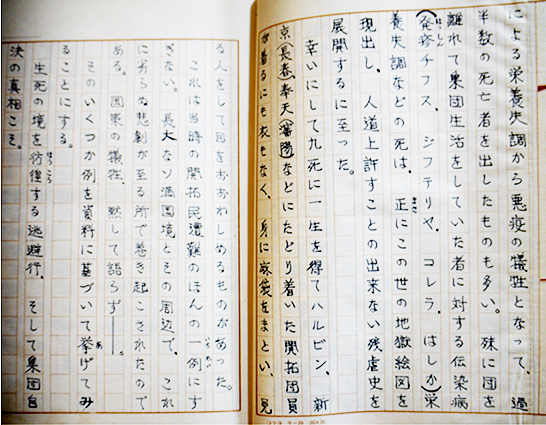 による栄養失調から悪疫の犠牲となって、過
半数の死亡者を出したものも多い。殊に団を
離れて集団生活をしていた者に対する伝染病
(発疹チフス、ジフテリヤ、コレラ、はしか)栄
養失調などの死は、正にこの世の地獄絵図を
現出し、人道上許すことの出来ない残虐史を
展開するに至った。
幸いにして九死に一生を得てハルビン、新
京(長春)、奉天(瀋陽)などにたどり着いた開拓団員
が着るにも衣もなく、身に麻袋をまとい、見
る人をして目をおおわしめるものがあった。
これは当時の開拓民遭難のほんの一例にす
ぎない。長大なソ満国境とその周辺で、これ
に劣らぬ悲劇が至る所で巻き起こされたので
ある。国策の犠牲、黙して語らず――。
そのいくつか例を資料に基づいて挙げてみ
ることにする。
生死の境を彷徨する逃避行、そして集団自
決の真相こそ。